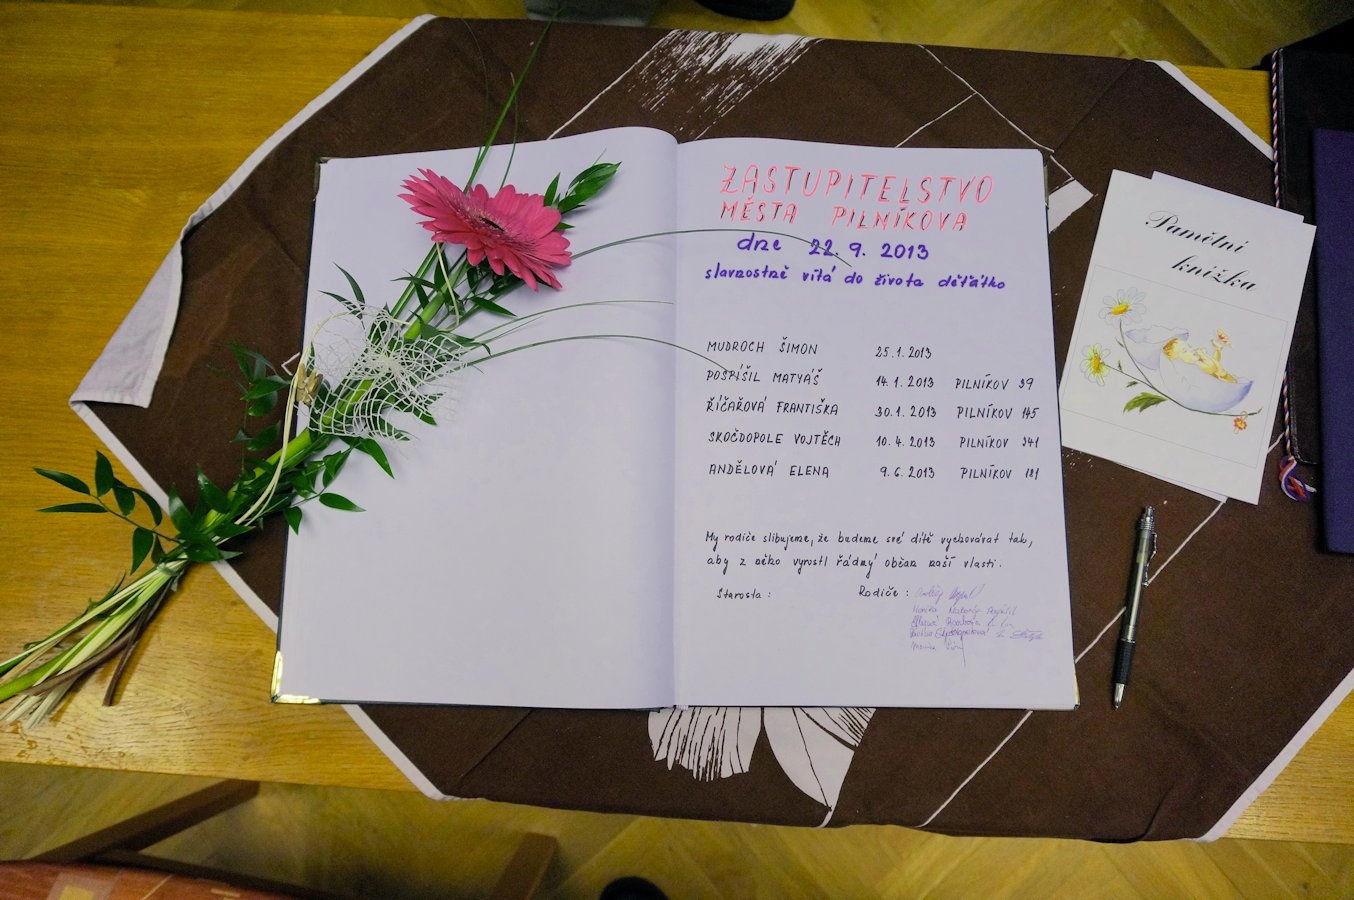 ZASTUPITELSTVO
MĚSTA PILNÍKOVA
dne 22. 9. 2013
slavnostně vítá do života děťátko
MUDROCH ŠIMON 25.1.2013
POSPÍŠIL MATYÁŠ 14.1.2013 PILNÍKOV 39
ŘÍČAŘOVÁ FRANTIŠKA 30.1.2013 PILNÍKOV 145
SKOČDOPOLE VOJTĚCH 10.4.2013 PILNÍKOV 241
ANDĚLOVÁ ELENA 9.6.2013 PILNÍKOV 181
My rodiče slibujeme, že budeme své dítě vychovávat tak,
aby z něho vyrostl řádný občan naší vlasti.
Starosta : Rodiče :
Pamětní
knížka